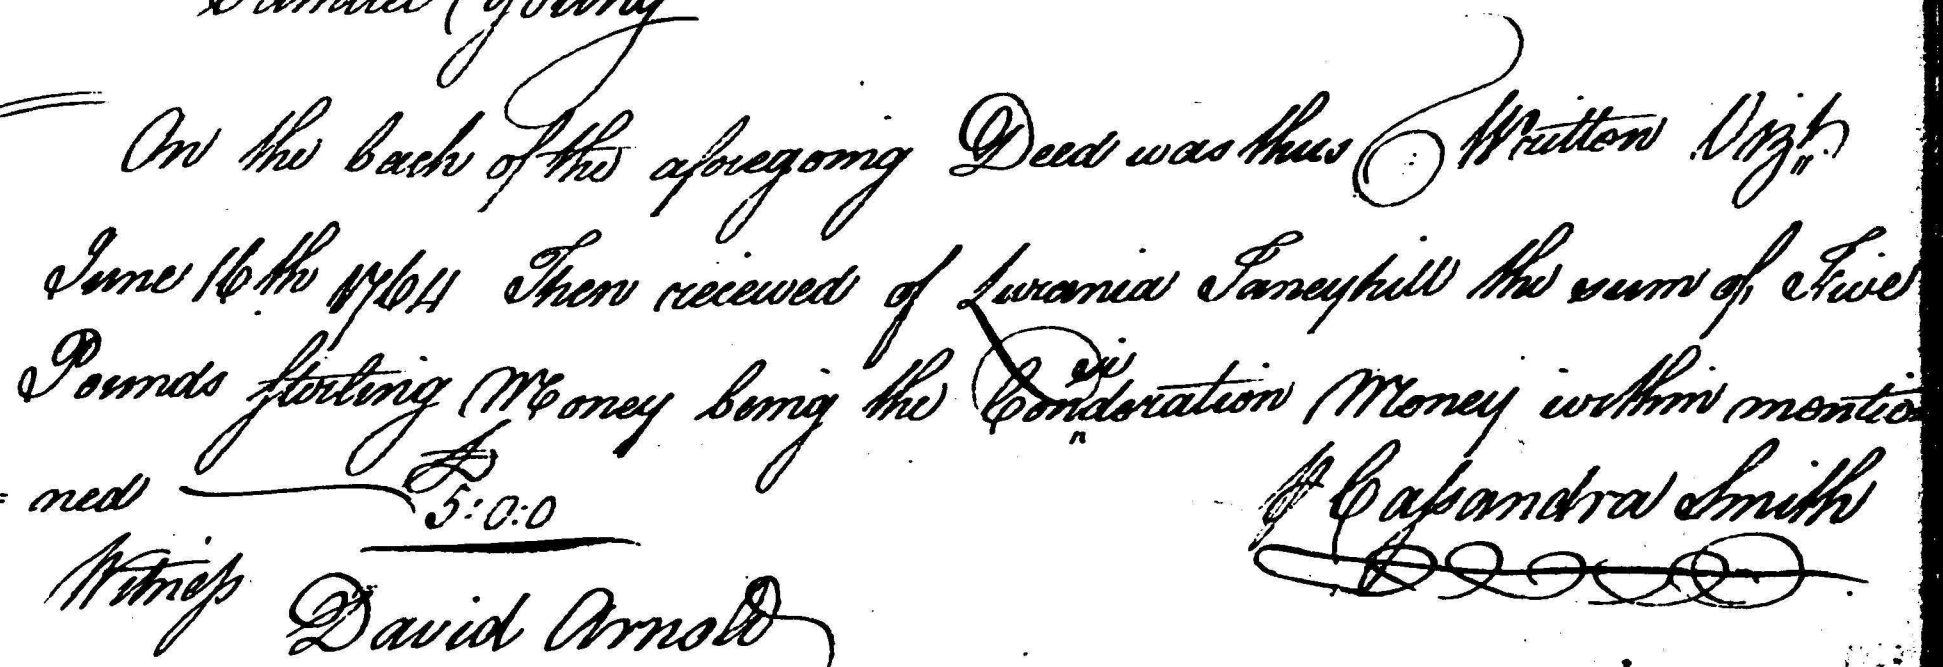 Samuel Young
On the back of the aforegoing Deed was thus Written Vizt.
June 16th 1764 Then received of Lurania Taneyhill the sum of Five
Pounds sterling Money being the Consideration Money within mentio
= ned £5:0:0 Cassandra Smith
Witness
David Arnold